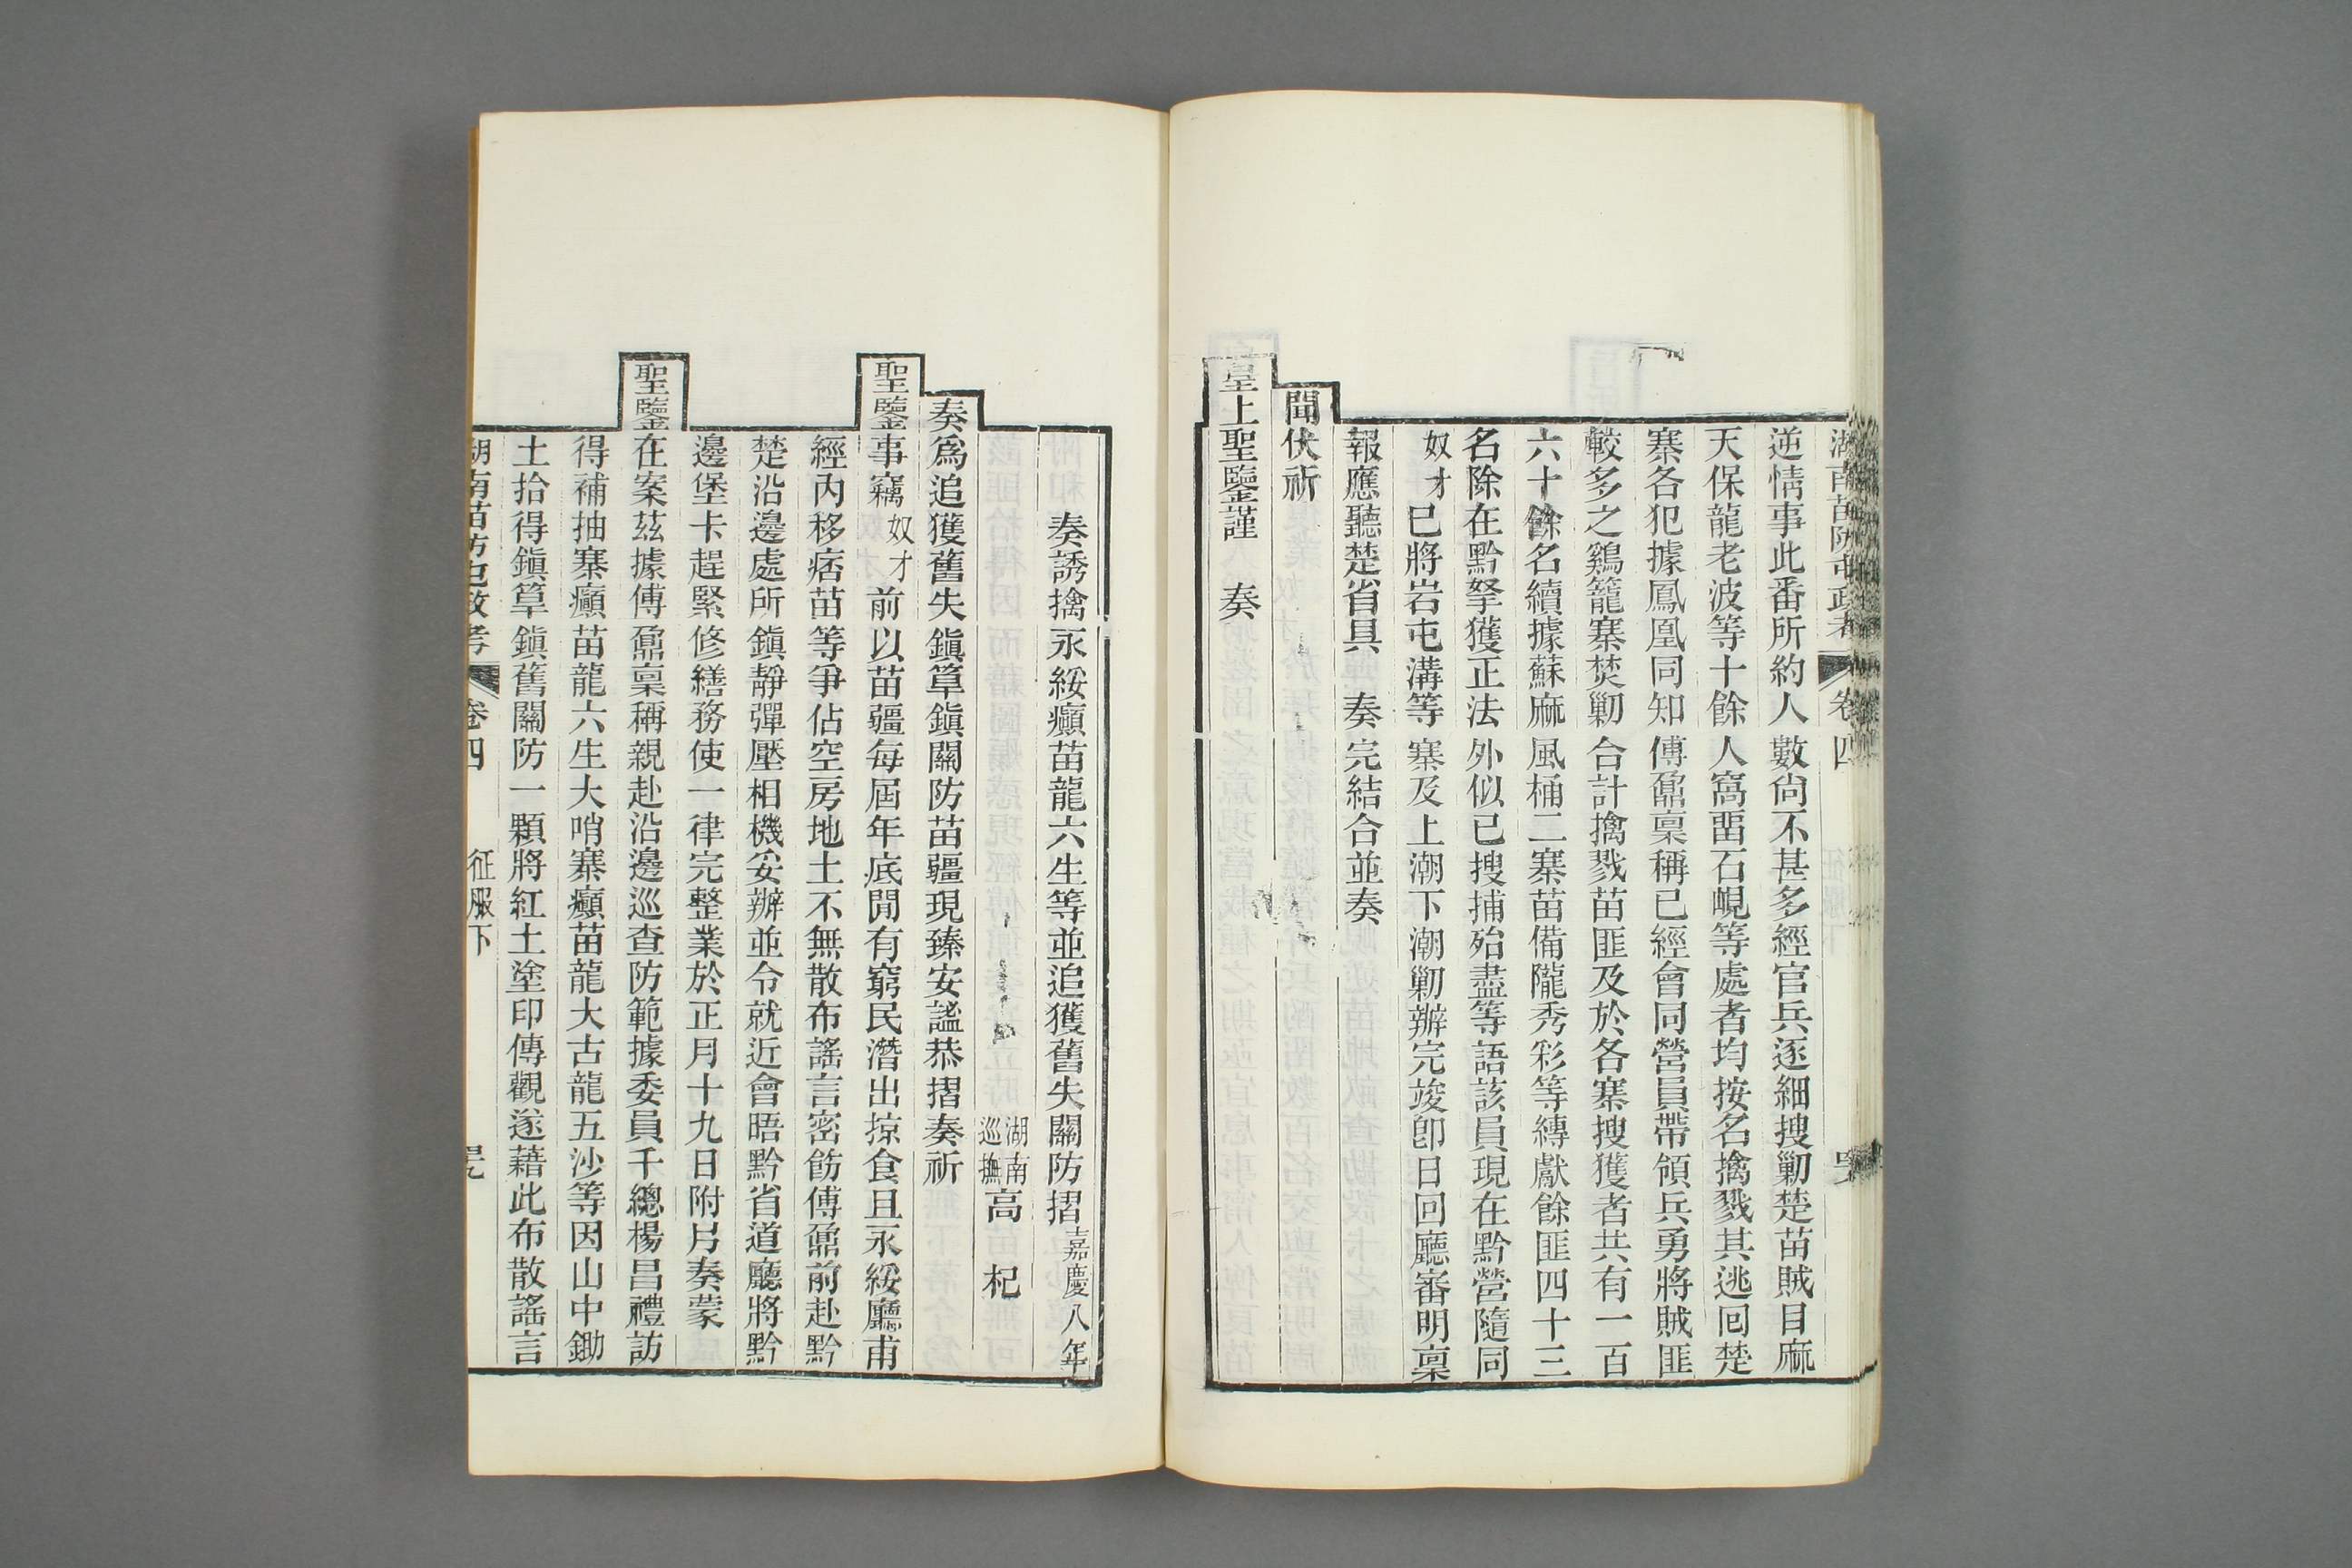 湖南苗防屯政考 卷四
逆情事此番所約人數尙不甚多經官兵逐細搜勦楚苗賊目麻
天保龍老波等十餘人窩畱石峴等處者均按名擒戮其逃回楚
寨各犯據鳳凰同知傅鼐稟稱已經會同營員帶領兵勇將賊匪
較多之鷄籠寨焚勦合計擒戮苗匪及於各寨搜獲者共有一百
六十餘名續據蘇麻風桶二寨苗備隴秀彩等縛獻餘匪四十三
名除在黔拏獲正法外似已搜捕殆盡等語該員現在黔營隨同
奴才已將岩屯溝等寨及上潮下潮勦辦完竣卽日回廳審明稟
報應聽楚省具 奏完結合並奏
聞伏祈
皇上聖鑒謹 奏
奏誘擒永綏癲苗龍六生等並追獲舊失關防摺 嘉慶八年
湖南巡撫高杞
奏爲追獲舊失鎭筸鎭關防苗疆現臻安謐恭摺奏祈
聖鑒事竊奴才前以苗疆每屆年底閒有窮民潛出掠食且永綏廳甫
經內移痞苗等爭佔空房地土不無散布謠言密飭傅鼐前赴黔
楚沿邊處所鎭靜彈壓相機妥辦並令就近會晤黔省道廳將黔
邊堡卡趕緊修繕務使一律完整業於正月十九日附片奏蒙
聖鑒在案茲據傅鼐稟稱親赴沿邊巡查防範據委員千總楊昌禮訪
得補抽寨癲苗龍六生大哨寨癲苗龍大古龍五沙等因山中鋤
土拾得鎭筸鎭舊關防一顆將紅土塗印傳觀遂藉此布散謠言
湖南苗防屯政考 卷四 征服下